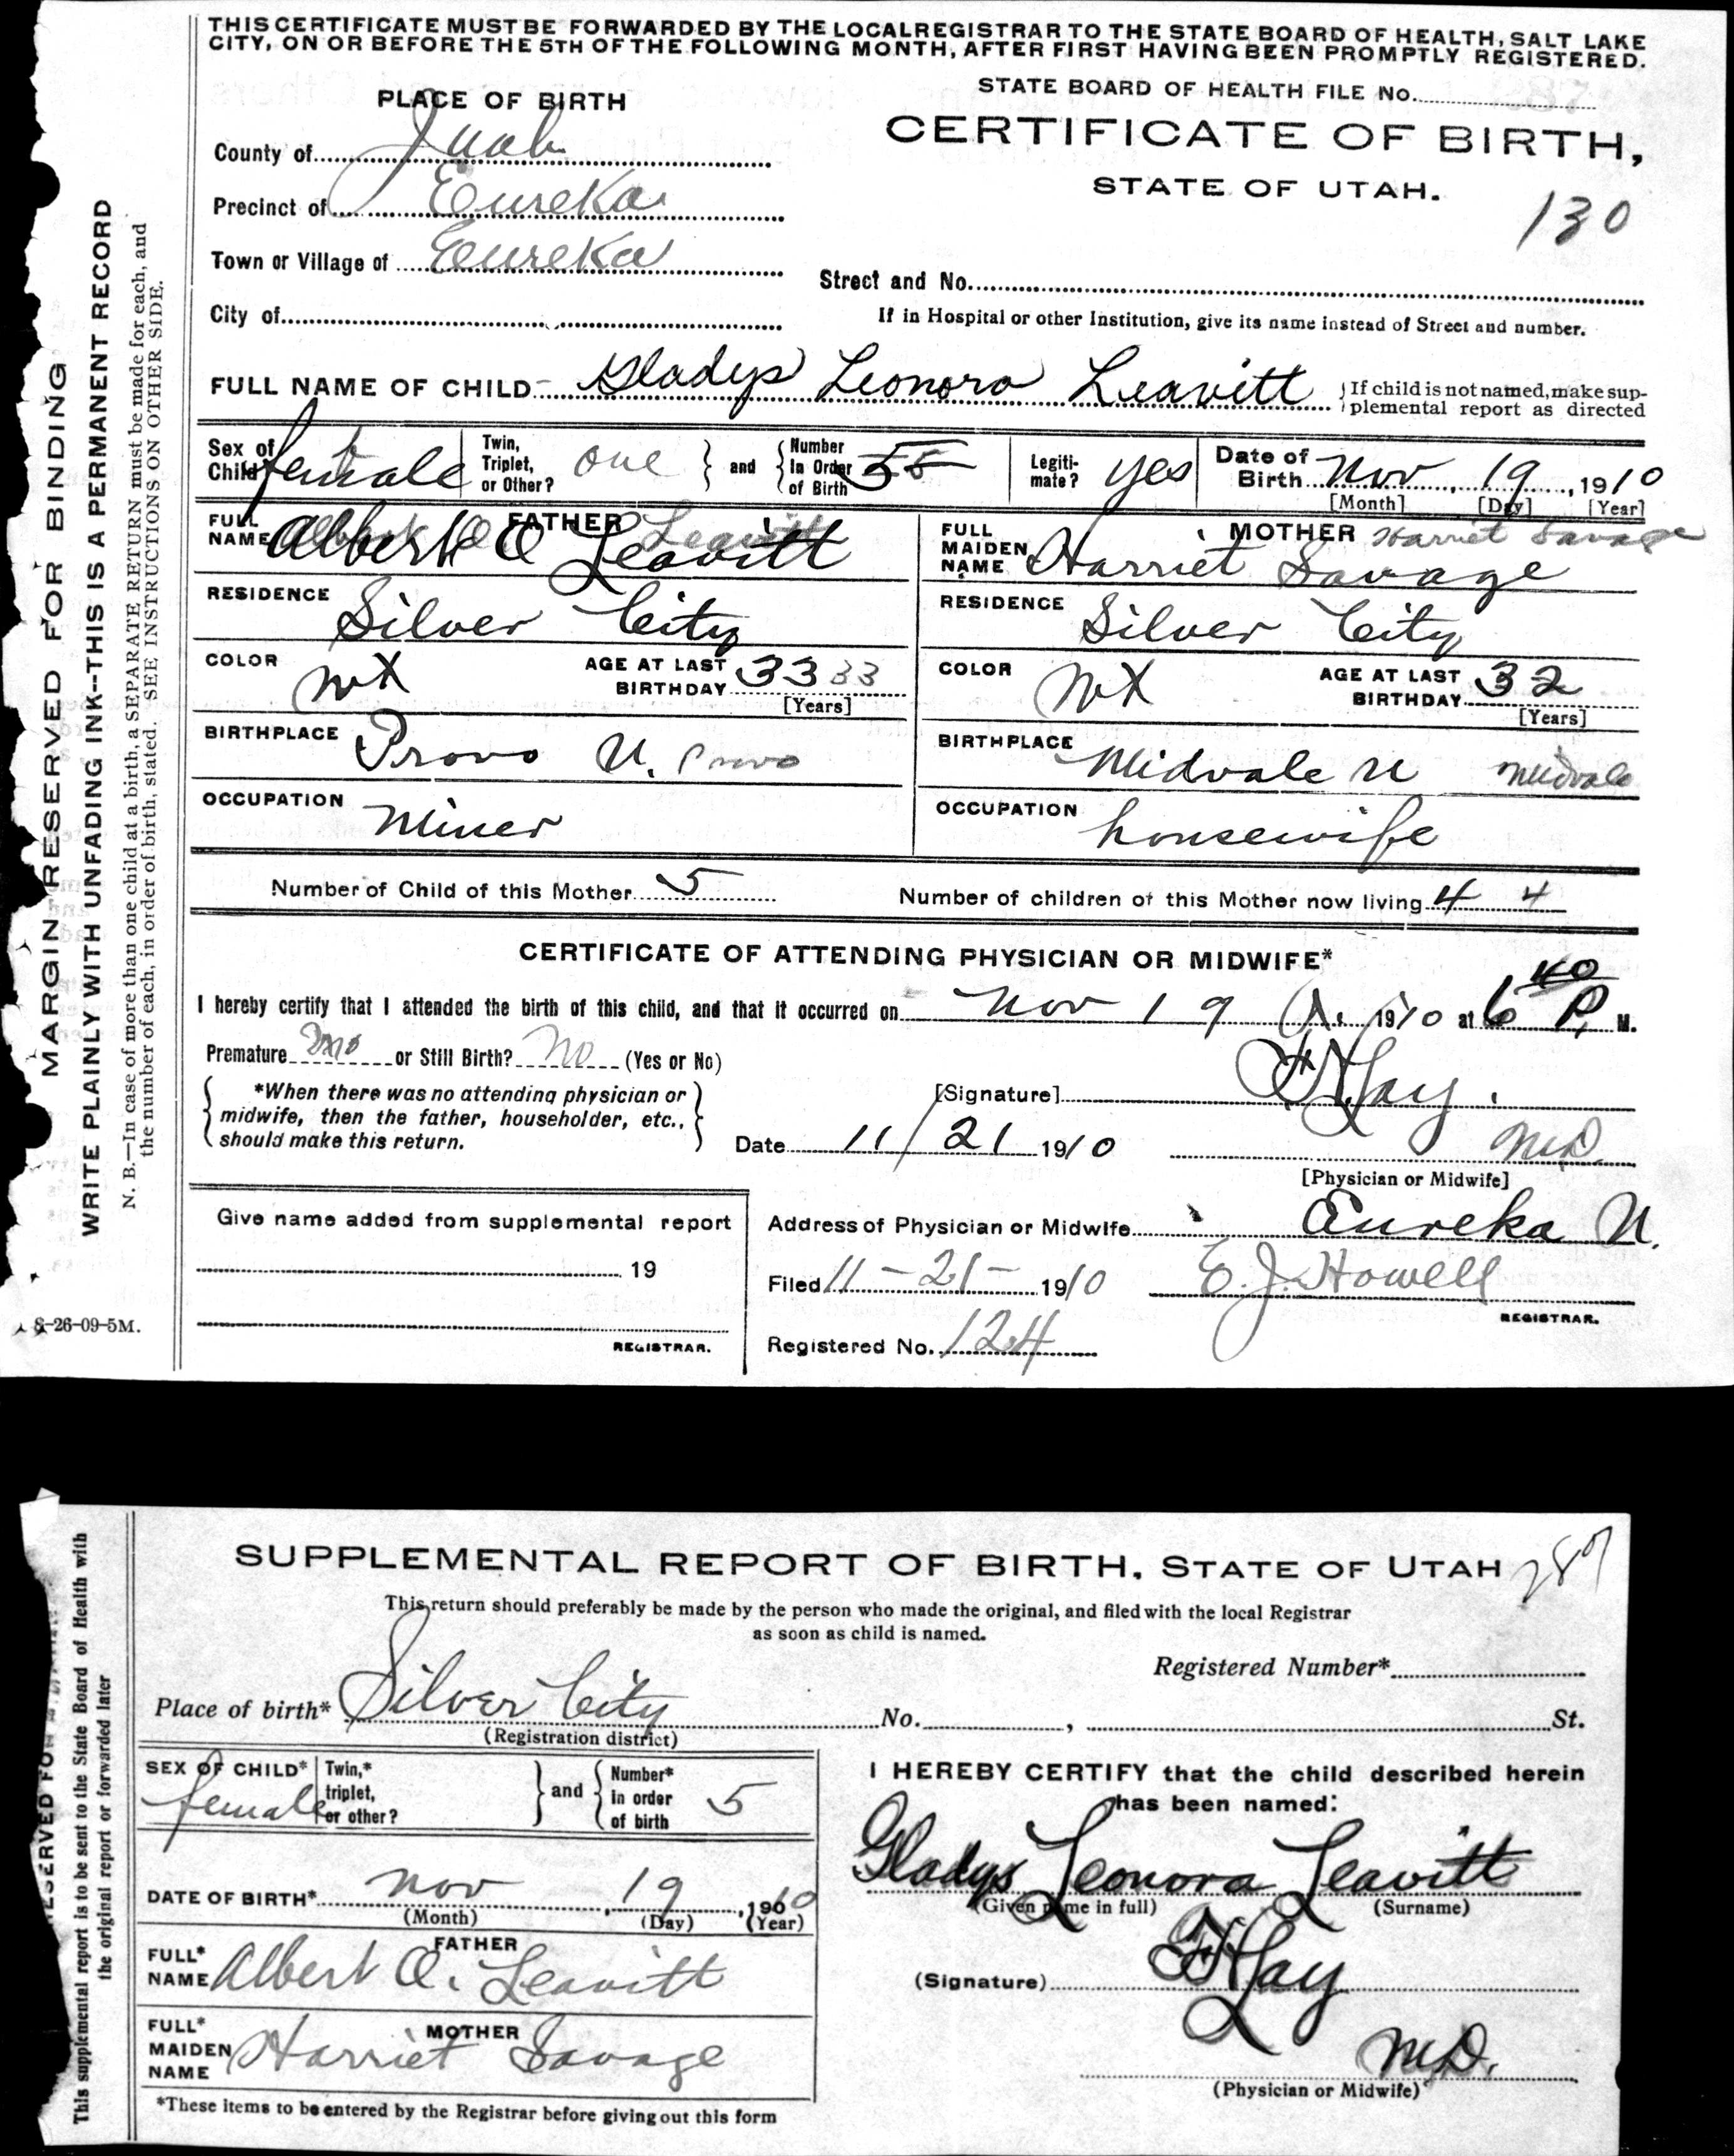 THIS CERTIFICATE MUST BE FORWARDED BY THE LOCAL REGISTRAR TO THE STATE BOARD OF HEALTH, SALT LAKE
CITY, ON OR BEFORE THE 5TH OF THE FOLLOWING MONTH, AFTER FIRST HAVING BEEN PROMPTLY REGISTERED.
STATE BOARD OF HEALTH FILE No.
PLACE OF BIRTH
CERTIFICATE OF BIRTH,
STATE OF UTAH.
130
County of Juab
Precinct of Eureka
Town or Village of Eureka
City of
Street and No.
If in Hospital or other Institution, give its name instead of Street and number.
FULL NAME OF CHILD Gladys Leonora Leavitt
If child is not named, make sup-
plemental report as directed
Sex of Child female
Twin, Triplet, or Other? one
and
Number In Order of Birth 5 5
Legiti-mate? yes
Date of Birth Nov 19, 1910
[Month] [Day] [Year]
FATHER
FULL NAME Albert O Leavitt
RESIDENCE Silver City
COLOR
AGE AT LAST BIRTHDAY 33 33
[Years]
BIRTHPLACE Provo U. Provo
OCCUPATION Miner
MOTHER Harriet Savage
FULL MAIDEN NAME Harriet Savage
RESIDENCE Silver City
COLOR
AGE AT LAST BIRTHDAY 32
[Years]
BIRTHPLACE Midvale U Midvale
OCCUPATION housewife
Number of Child of this Mother 5
Number of children of this Mother now living 4 4
CERTIFICATE OF ATTENDING PHYSICIAN OR MIDWIFE*
I hereby certify that I attended the birth of this child, and that it occurred on Nov 19 1910 at 6 40 P. M.
Premature no or Still Birth? No (Yes or No)
*When there was no attending physician or
midwife, then the father, householder, etc.,
should make this return.
[Signature]
Date 11/21 1910
M.D.
[Physician or Midwife]
Give name added from supplemental report
19
REGISTRAR.
Address of Physician or Midwife Eureka U.
Filed 11-21- 1910 E. J. Howell
REGISTRAR.
Registered No. 124
MARGIN RESERVED FOR BINDING
WRITE PLAINLY WITH UNFADING INK--THIS IS A PERMANENT RECORD
N. B.—In case of more than one child at a birth, a SEPARATE RETURN must be made for each, and
the number of each, in order of birth, stated. SEE INSTRUCTIONS ON OTHER SIDE.
8-26-09-5M.
SUPPLEMENTAL REPORT OF BIRTH, STATE OF UTAH
287
This return should preferably be made by the person who made the original, and filed with the local Registrar
as soon as child is named.
Registered Number*
Place of birth* Silver City No. , St.
(Registration district)
SEX OF CHILD* female
Twin,* triplet, or other?
and
Number* in order of birth 5
DATE OF BIRTH* Nov 19, 1910
(Month) (Day) (Year)
FATHER
FULL* NAME Albert O. Leavitt
MOTHER
FULL* MAIDEN NAME Harriet Savage
*These items to be entered by the Registrar before giving out this form
I HEREBY CERTIFY that the child described herein
has been named:
Gladys Leonora Leavitt
(Given name in full) (Surname)
(Signature)
M.D.
(Physician or Midwife)
This supplemental report is to be sent to the State Board of Health with
the original report or forwarded later